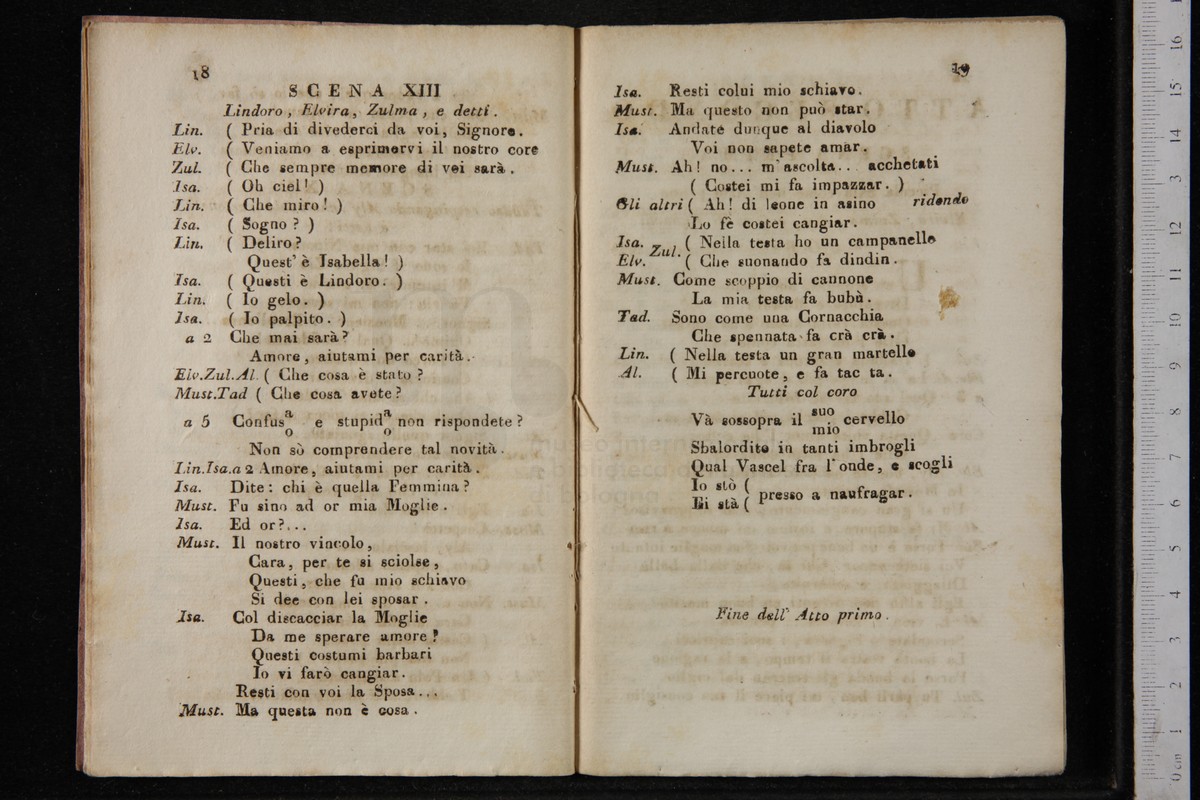 18
SCENA XIII
Lindoro, Elvira, Zulma, e detti.
Lin. ( Pria di dividerci da voi, Signore.
Elv. ( Veniamo a esprimervi il nostro core
Zul. ( Che sempre memore di voi sarà.
Isa. ( Oh ciel! )
Lin. ( Che miro! )
Isa. ( Sogno? )
Lin. ( Deliro?
Quest' è Isabella! )
Isa. ( Questi è Lindoro. )
Lin. ( Io gelo. )
Isa. ( Io palpito. )
a 2 Che mai sarà?
Amore, aiutami per carità.
Elv.Zul.Al. ( Che cosa è stato?
Must.Tad ( Che cosa avete?
a 5 Confus a/o e stupid a/o non rispondete?
Non sò comprendere tal novità.
Lin.Isa.a 2 Amore, aiutami per carità.
Isa. Dite: chi è quella Femmina?
Must. Fu sino ad or mia Moglie.
Isa. Ed or?...
Must. Il nostro vincolo,
Cara, per te si sciolse,
Questi, che fu mio schiavo
Si dee con lei sposar.
Isa. Col discacciar la Moglie
Da me sperare amore?
Questi costumi barbari
Io vi farò cangiar.
Resti con voi la Sposa...
Must. Ma questa non è cosa.
19
Isa. Resti colui mio schiavo.
Must. Ma questo non può star.
Isa. Andate dunque al diavolo
Voi non sapete amar.
Must. Ah! no... m'ascolta... acchetati
( Costei mi fa impazzar. )
Gli altri ( Ah! di leone in asino ridendo
Lo fè costei cangiar.
Isa. Zul. ( Nella testa ho un campanello
Elv. ( Che suonando fa dindin.
Must. Come scoppio di cannone
La mia testa fa bubù.
Tad. Sono come una Cornacchia
Che spennata fa crà crà.
Lin. ( Nella testa un gran martello
Al. ( Mi percuote, e fa tac ta.
Tutti col coro
Và sossopra il suo/mio cervello
Sbalordito in tanti imbrogli
Qual Vascel fra l'onde, e scogli
Io stò (
Ei stà ( presso a naufragar.
Fine dell' Atto primo.
museo inter
biblioteca d
di bologna
0 cm 1 2 3 4 5 6 7 8 9 10 11 12 13 14 15 16